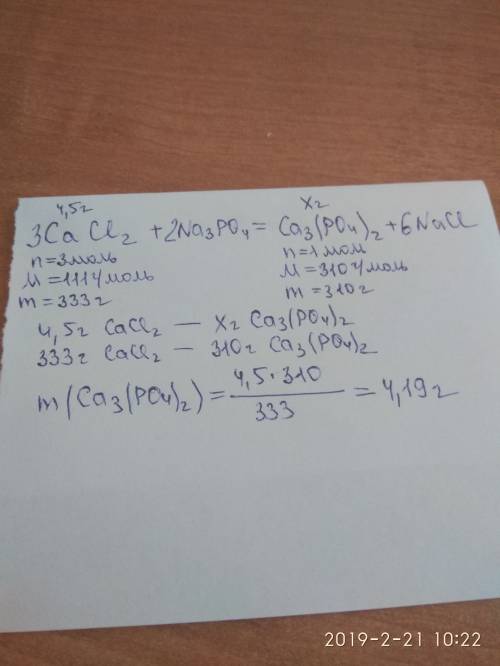 4,5г хг
3CaCl₂ + 2Na₃PO₄ = Ca₃(PO₄)₂ + 6NaCl
n = 3моль n = 1моль
M = 111г/моль M = 310г/моль
m = 333г m = 310г
4,5г CaCl₂ — хг Ca₃(PO₄)₂
333г CaCl₂ — 310г Ca₃(PO₄)₂
m(Ca₃(PO₄)₂) = 4,5·310 / 333 = 4,19г
2019-2-21 10:22